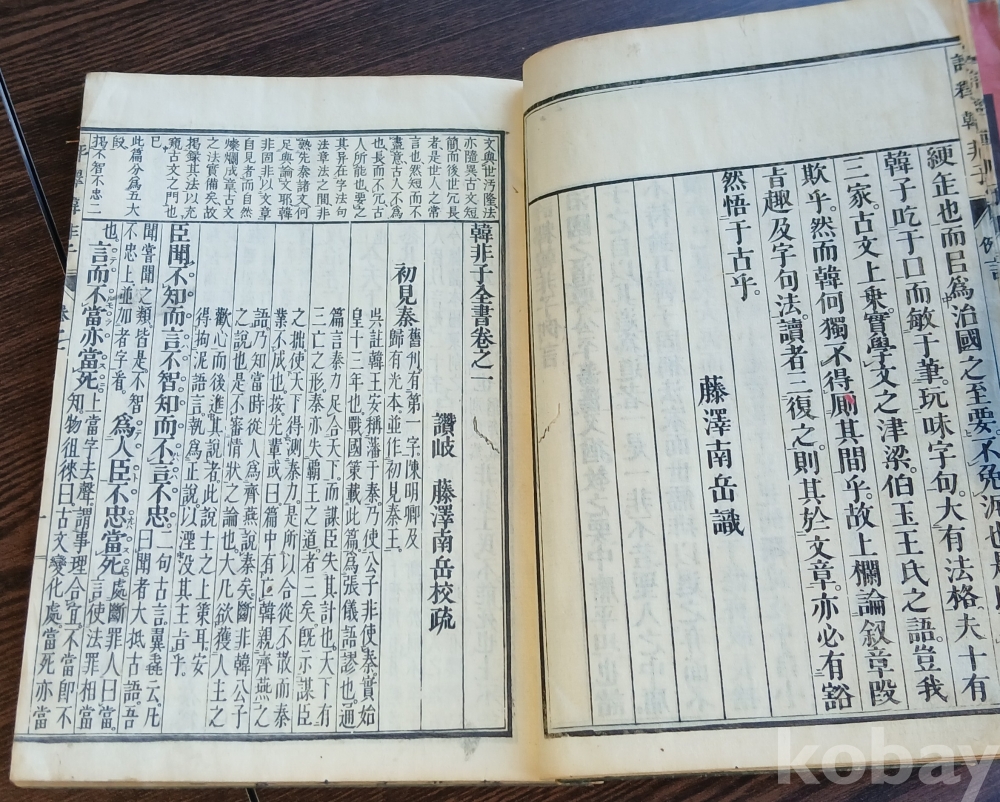 綆缶也而㠯爲治國之至要不免
韓子吃于口而敏于筆玩味字句大有法格夫十有
三家古文上乗實學文之津梁伯玉王氏之語豈我
欺乎然而韓何獨不得厠其間乎故上欄論叙章段
旨趣及字句法讀者三復之則其於文章亦必有豁
然悟于古乎
藤澤南岳識
例言
文與世汚隆法
亦隨異古文短
簡而後世冗長
者是世人之常
言也然短而不
盡意古人不爲
也長而不冗古
人所能也要之
其异在字法句
法章法之間非
熟先秦諸文何
足與論文耶韓
非固非以文章
自見者而自然
燦爛成章古文
之法實備矣故
掲録其法以充
窺古文之門也
已
此篇分爲五大
段
掲不智不忠二
韓非子全書卷之一
讚岐 藤澤南岳校疏
初見秦 舊刊有第一字陳明卿及
歸有光本並作初見秦王
呉註韓王安稱藩于秦乃使公子非使秦實始
皇十三年也戰國策載此篇爲張儀語謬也通
篇言秦力足以合天下而謀臣失其計也大下有
三亡之形秦亦失覇王之道者三矣既示謀臣
之拙使天下得測秦力是所以合從不散而秦
業不成也按先輩或曰篇中有亡韓親齊燕之
語乃知當時從人爲齊燕説秦矣斷非韓公子
之説也是不審情状之論也大凡欲獲人主之
歡心而後進其説者此説士之上策耳安
得拘泥語言執爲正説以湮没其主旨乎
臣聞不知而言不智知而不言不忠二句古言翼毳云凡
聞嘗聞之類皆是不智曰聞者大抵古語吾
不忠上並加者字者
也言而不當亦當死上當字去聲謂事理合宜不當即不
知物徂徠曰古文變化處當死亦當
爲人臣不忠當死處斷罪人曰當
言使法罪相當